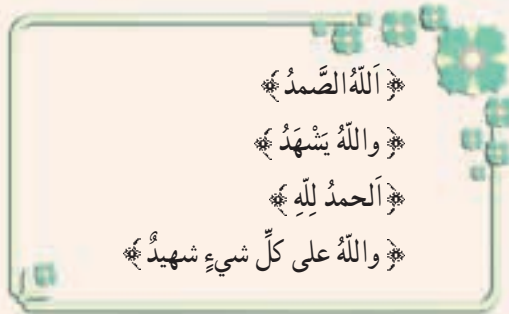 ﴿ اَللّهُ الصَّمدُ ﴾
﴿ واللّهُ يَشْهَدُ ﴾
﴿ اَلحمدُ لِلّهِ ﴾
﴿ واللّهُ على كلِّ شيءٍ شهيدٌ ﴾